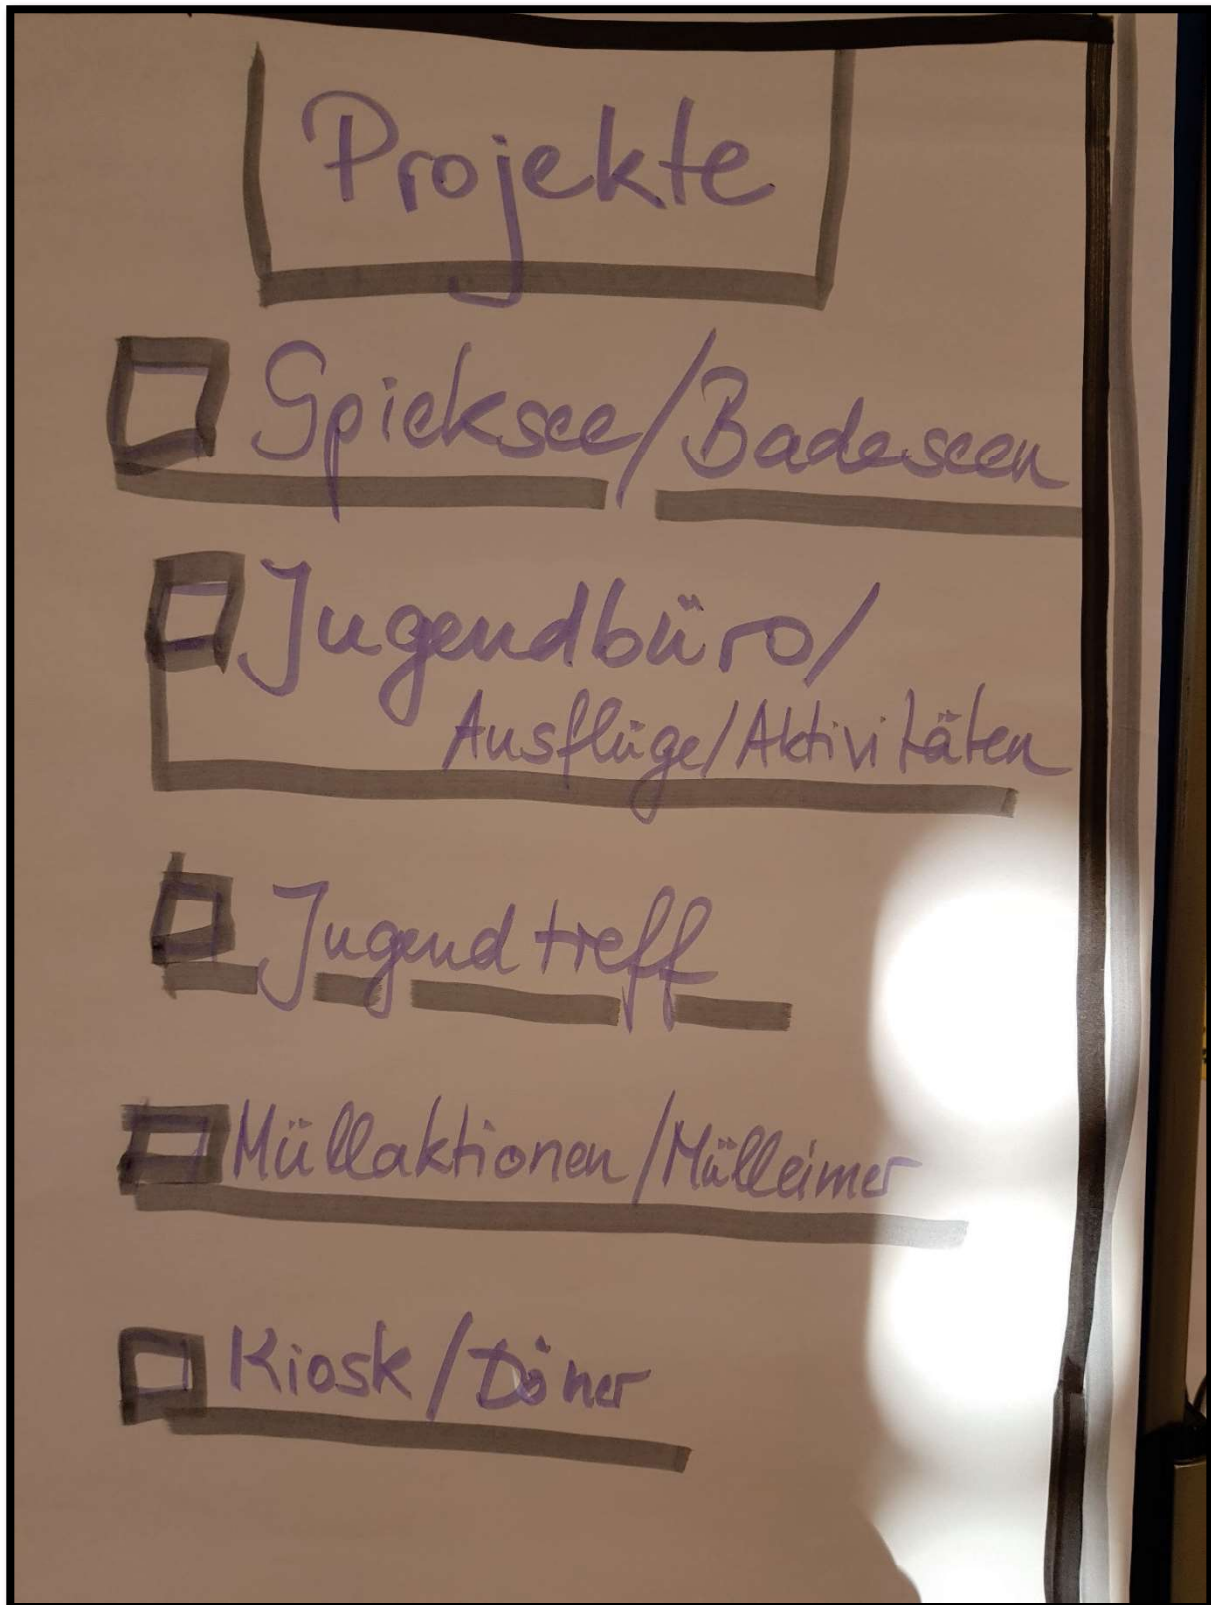 Projekte
Spieksee/Badeseen
Jugendbüro/
Ausflüge/Aktivitäten
Jugendtreff
Müllaktionen/Mülleimer
Kiosk/Döner